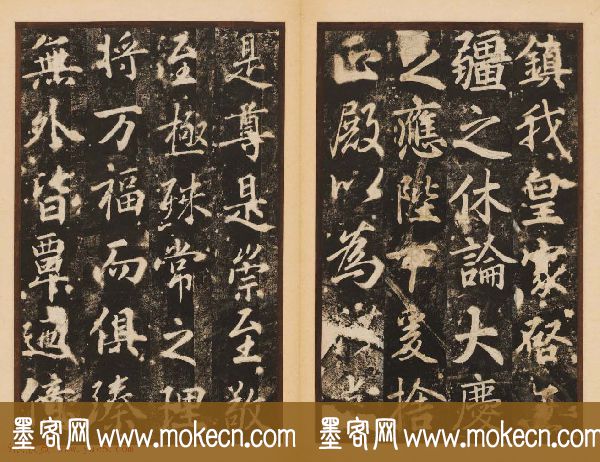 鎮我皇家啓無
疆之休論大慶
之應陛下爰捨
正殿以為
是尊是崇至敬
至極殊常之理
將万福而俱臻
無外皆覃遍
墨客网 www.mokecn.com 墨客网 www.mokecn.com